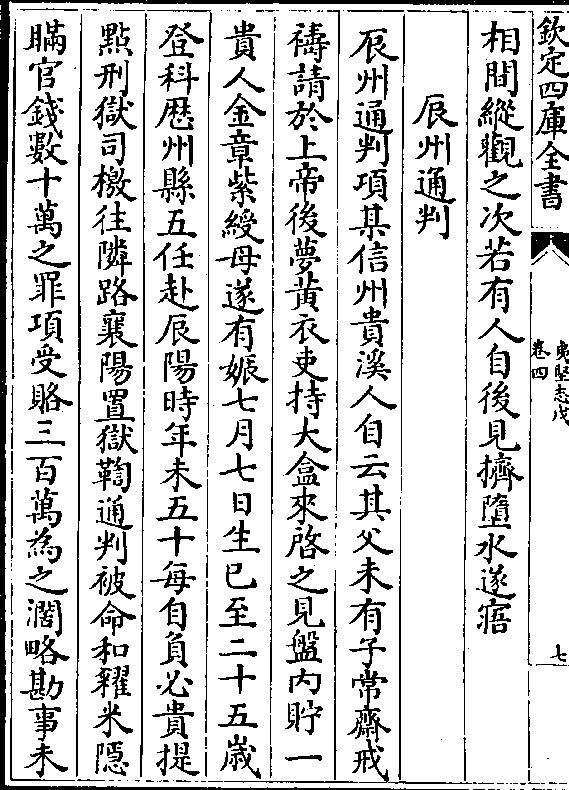 欽定四庫全書
夷堅志戊
卷四
七
相間縱觀之次若有人自後見擠墮水遂寤
辰州通判
辰州通判項某信州貴溪人自云其父未有子常齋戒
禱請於上帝後夢黃衣吏持大盒來啓之見盤内貯一
貴人金章紫綬母遂有娠七月七日生已至二十五歲
登科歴州縣五任赴辰陽時年未五十每自負必貴提
㸃刑獄司檄往隣路襄陽置獄鞫通判被命和糴米隠
瞞官錢數十萬之罪項受賂三百萬為之濶略勘事未